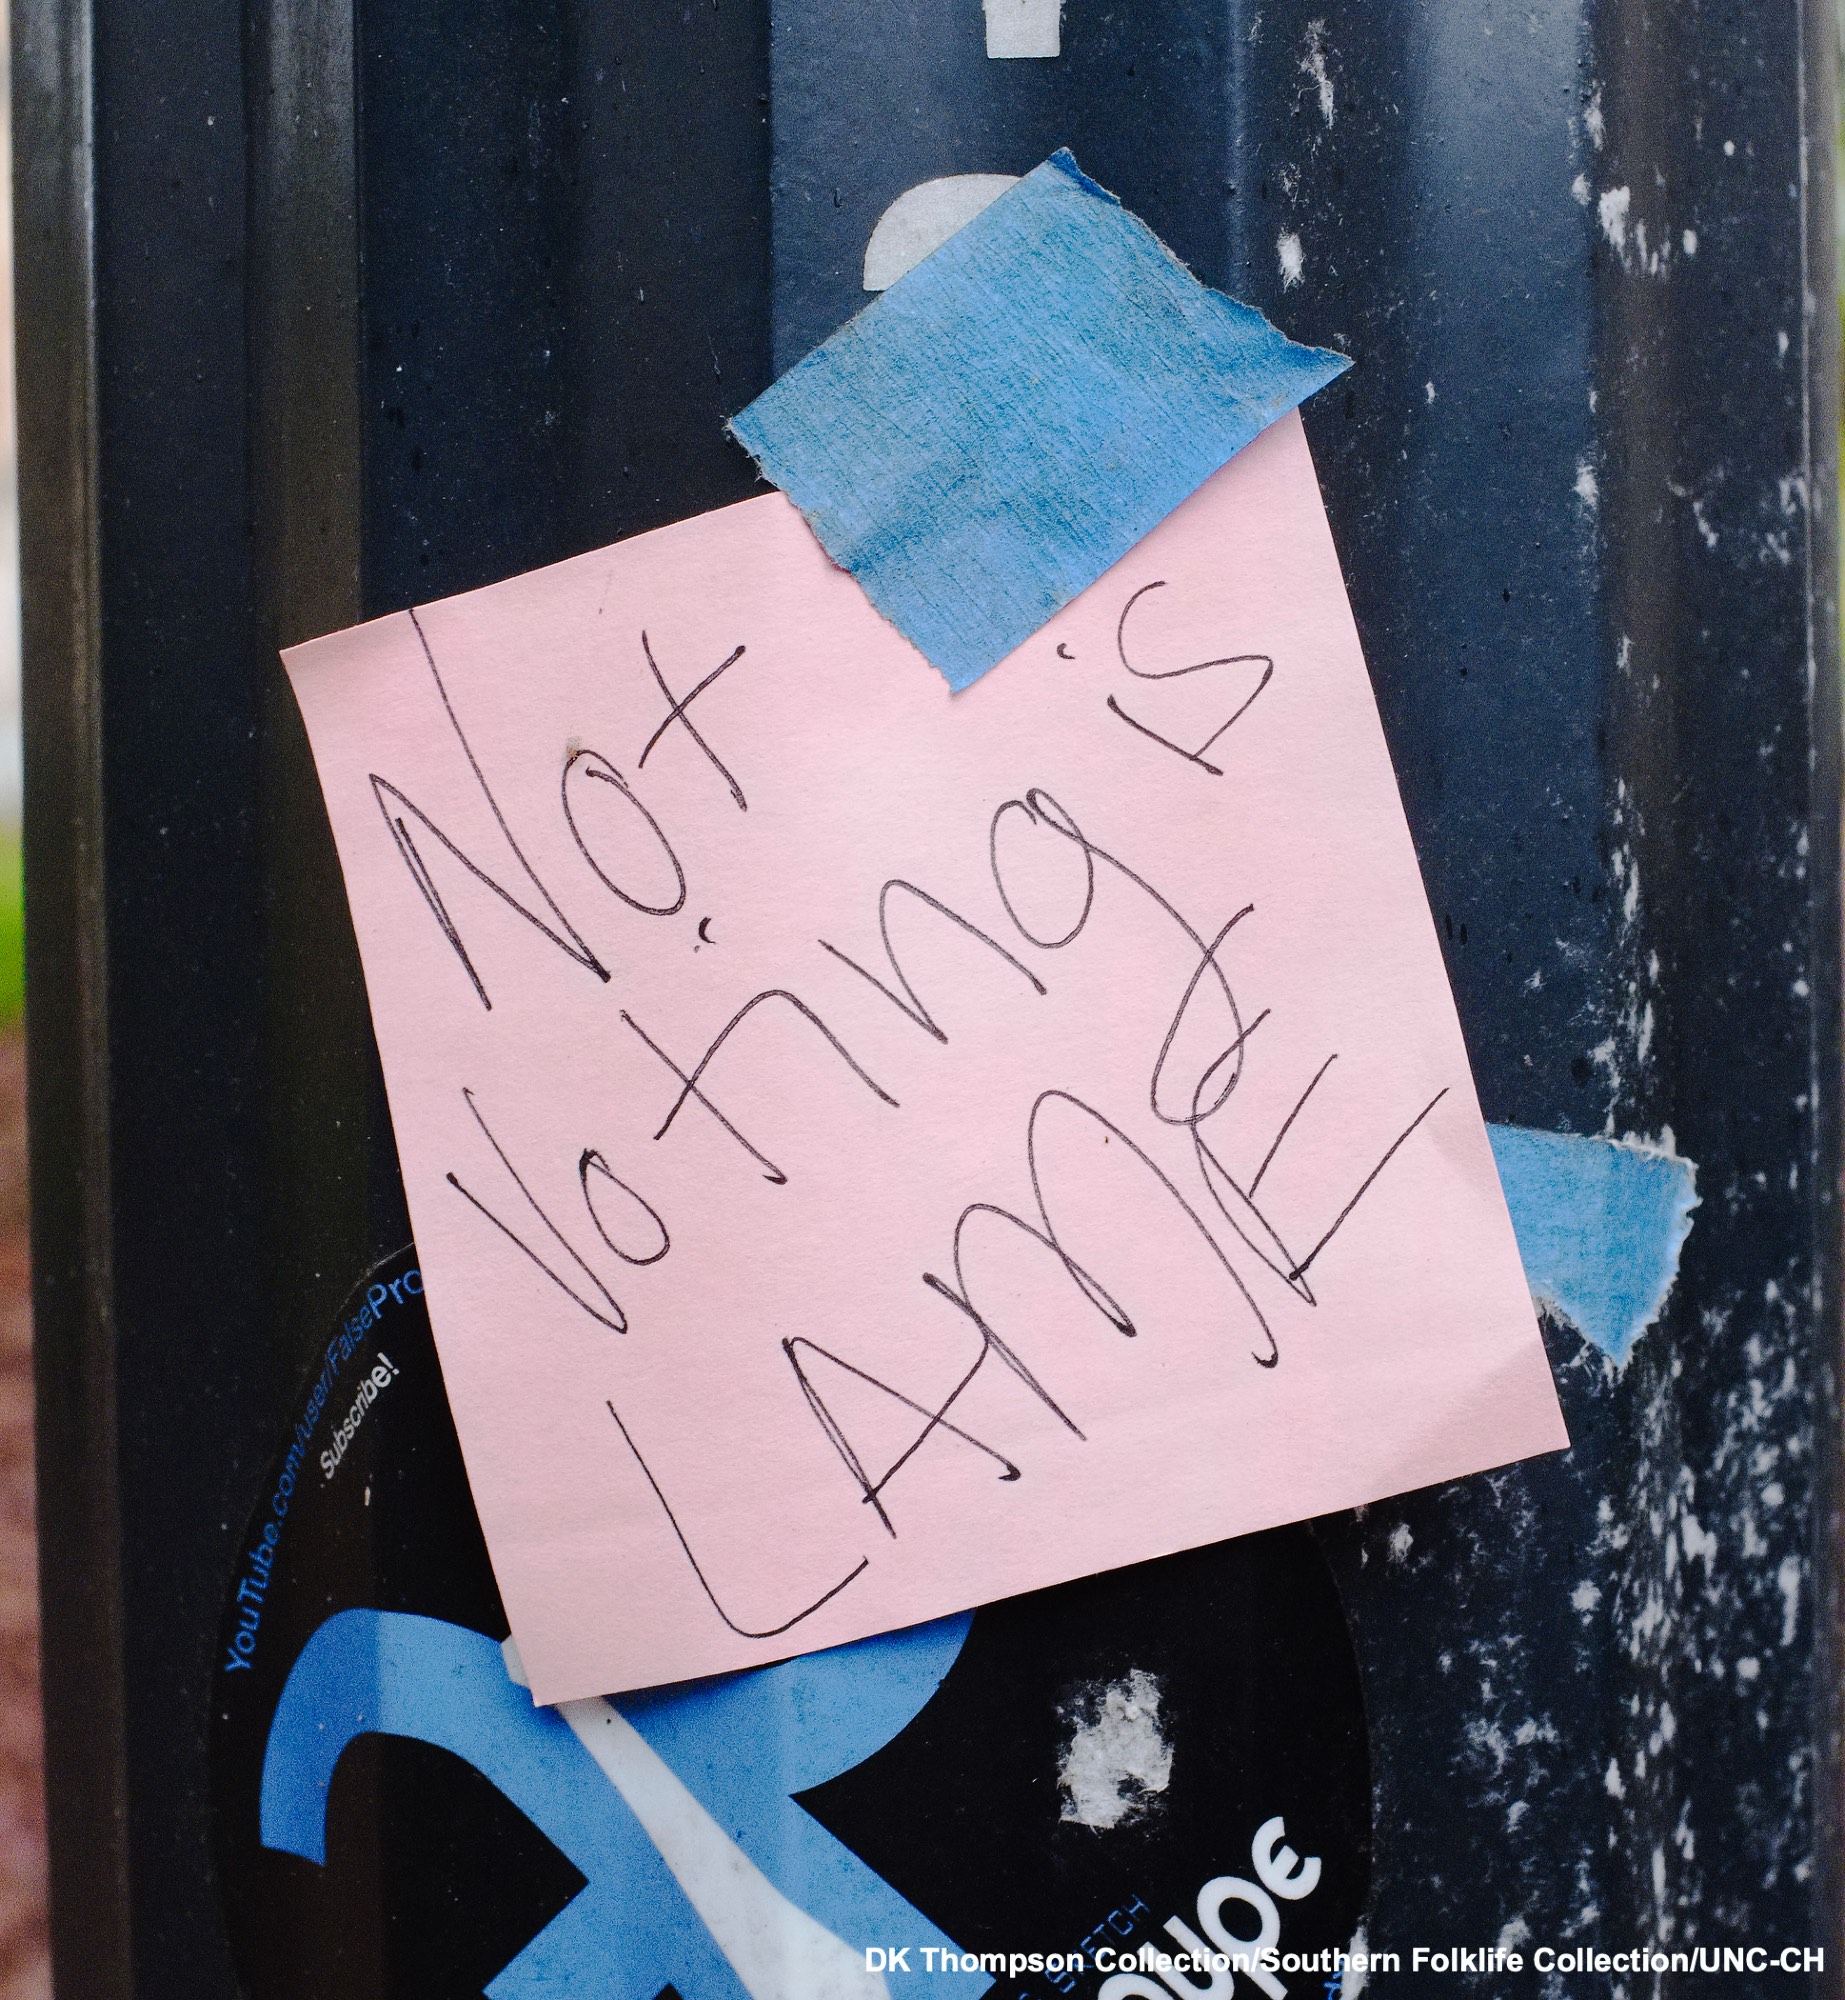 Not
Voting is
LAME
YouTube.com/user/FalsePro
Subscribe!
SKETCH
oupe
DK Thompson Collection/Southern Folklife Collection/UNC-CH